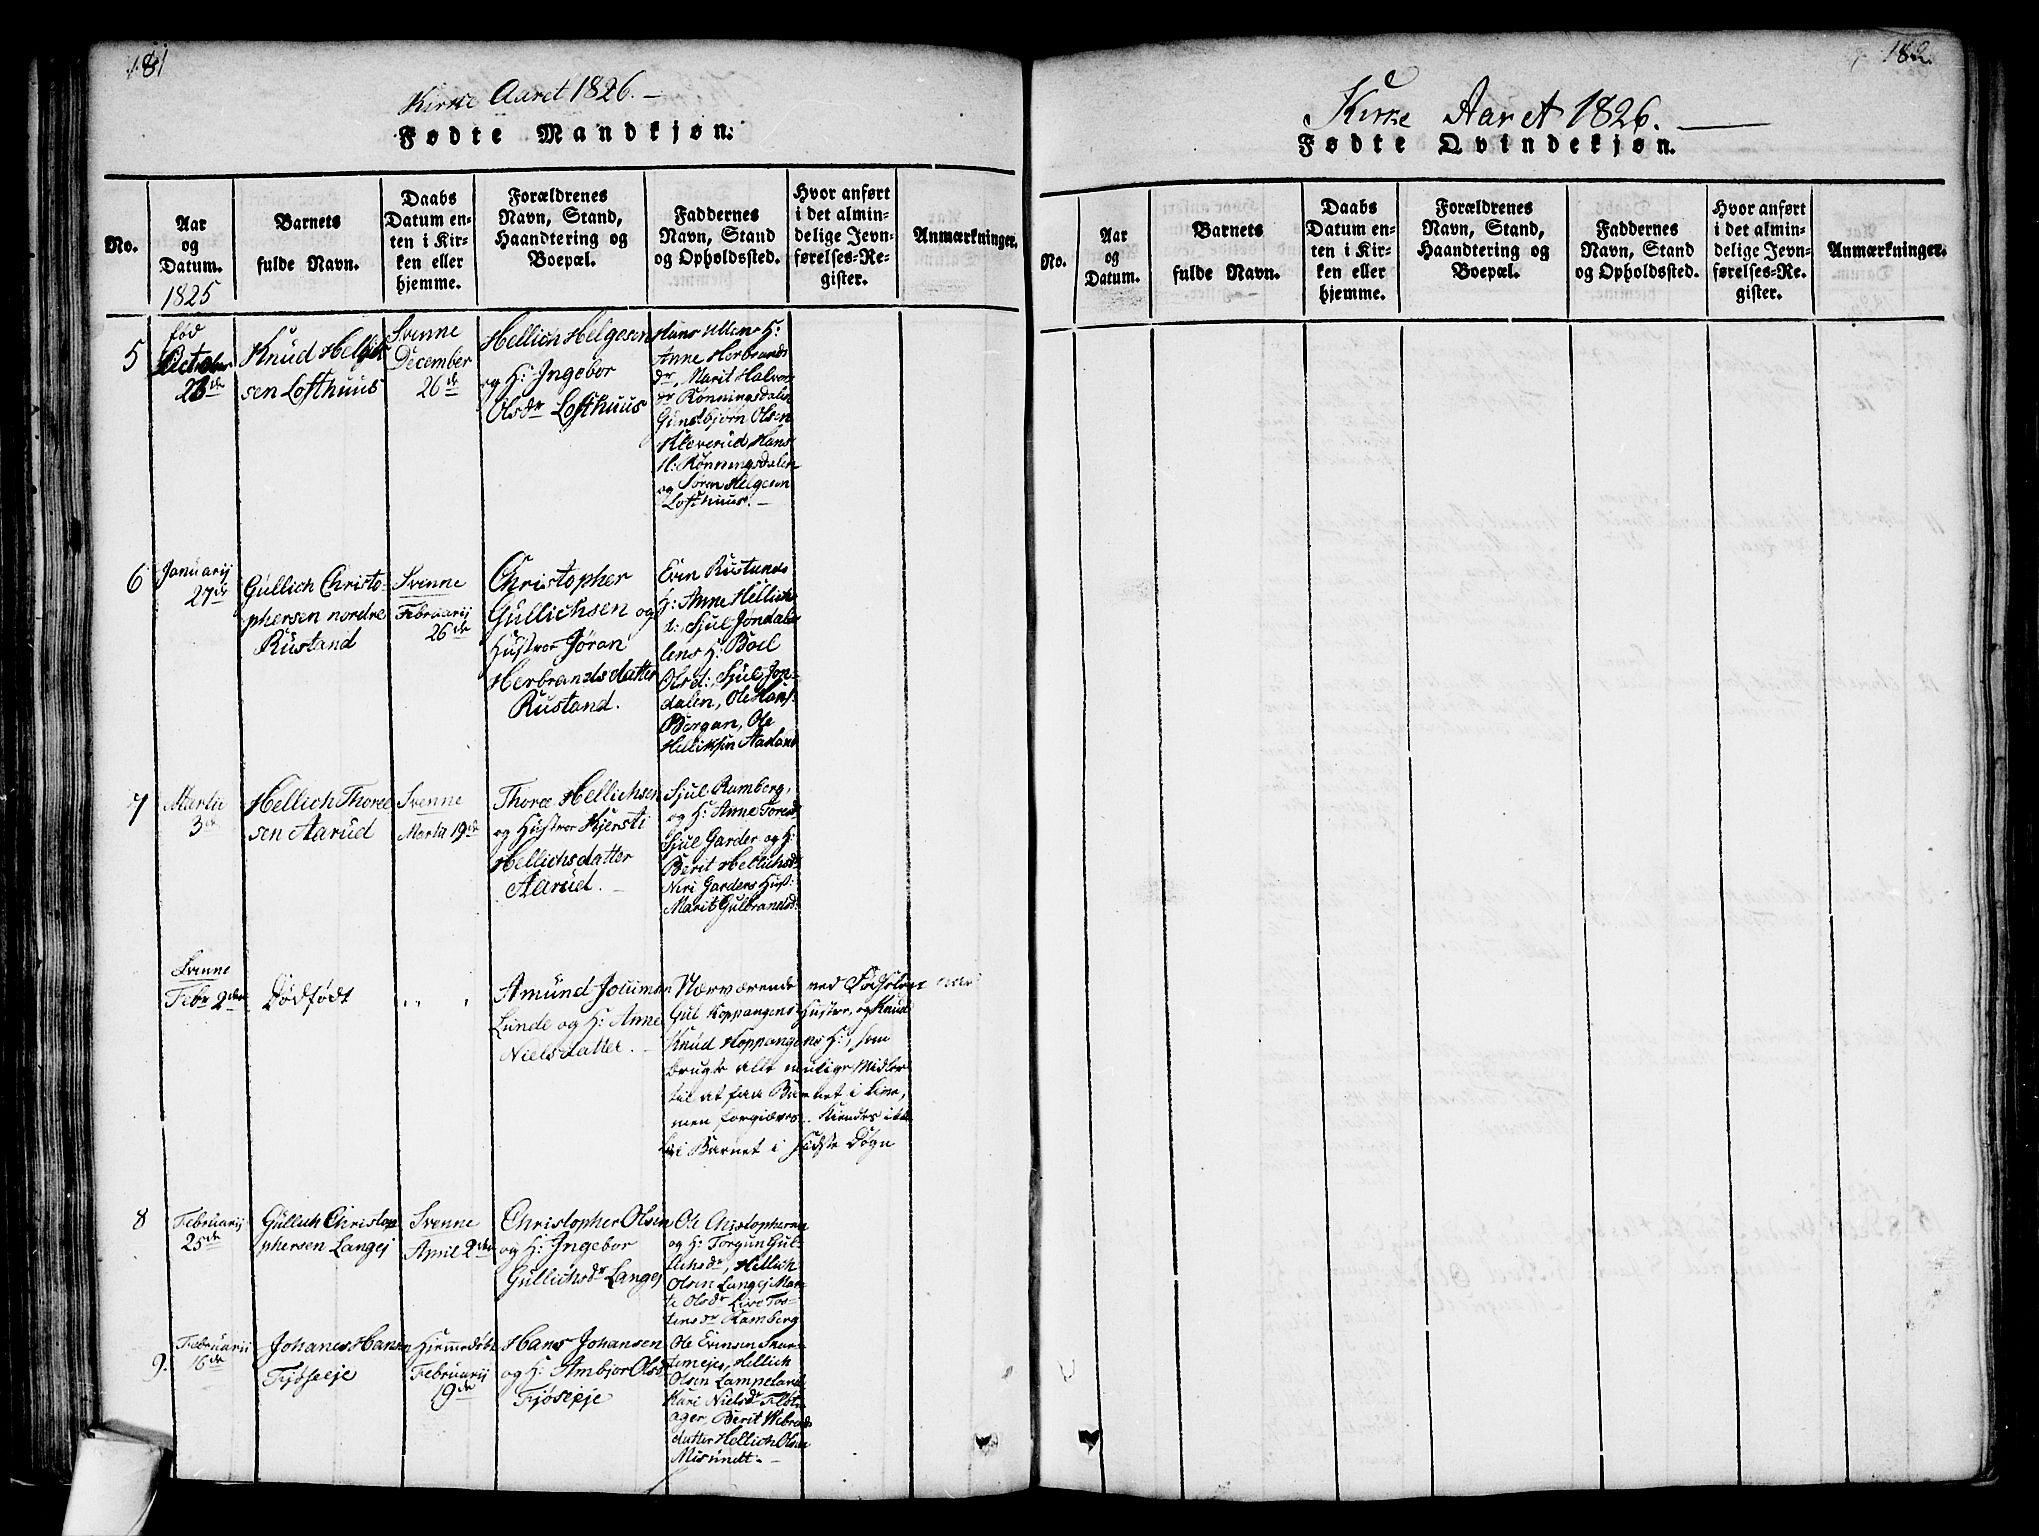 181
Kirke Aaret 1826. —
Fødte Mandkjøn.
No.
Aar
og
Datum.
1825
Barnets
fulde Navn.
Daabs
Datum en-
ten i Kir-
ken eller
hjemme.
Forældrenes
Navn, Stand,
Haandtering og
Boepæl.
Faddernes
Navn, Stand
og Opholdssted.
Hvor anført
i det almin-
delige Jevn-
førelses-Re-
gister.
Anmærkninger.
5
fød
October
28de
Knud Helgik
sen Lofthuus
Svenne
December
26de
Hellich Helgesen
og H: Ingebor
Olsdr Lofthuus
Hans Ullens H:
Anne Herbrands
dr, Marit Halvors
dr Rønningsdalen
Gunbjørn Olsen
Kleverud Hans
H: Rønningsdalen
og Søren Helgesen
Lofthuus. —
6
Januarij
27de
Gullich Christo-
phersen nordre
Rustand
Svenne
Februarij
26de
Christopher
Gullichsen og
Hustroe Jøran
Herbrandsdatter
Rustand.
Even Rustands
H: Anne Hellichs
d:, Sjul Jøndals
lens H: Boel
Olsd:, Sjul Jøn-
dalen, Ole Hans.
Bergan, Ole
Helliksen Aasland
7
Martii
3de
Hellich Thore
sen Aarud
Svenne
Martii 19de
Thore Hellichsen
og Hustroe Kjersti
Hellichsdatter
Aarud. —
Sjul Ramberg,
og H: Anne Toresd
Sjul Garder og H:
Berit Hellichsd:
Niri Garders Hust:
Marit Gulbrandsd:
Svenne
Febr 2den
Dødfødt
Amund Joen
Lunde og H: Anne
Nielsdatter. —
Nærværende ved Fødselen var
Gul Koppangens Hustroe, og Knud
Knud Koppangens H:, som
brugte alle mulige Midler
til at faa Barnet i Live,
men forgiæves. Kiendes ikke
Liv i Barnet i sidste Døgn
8
Februarij
25de
Gullich Christop
phersen Langej
Svenne
April 2den
Christopher Olsen
og H: Ingebor
Gullichsdr Langej
Ole Christophersen
og H: Torgun Gul-
lichsdr, Hellich
Olsen Langej, Mar-
te Olsdr Live Tos-
tensdr Ramberg
9.
Februarij
16de
Johanes Hansen
Fjøseje
Hjemmedøbt
Februarij
19de
Hans Johansen
og H: Ambjor Olsdr
Fjøseeje
Ole Evensen
Hellich
Olsen Lampeland
Kari Nielsdr
ager, Berit Wibrands
datter Hellich Olsen
Misundt. —
182.
Kirke Aaret 1826. —
Fødte Qvindekjøn.
No.
Aar
og
Datum.
Barnets
fulde Navn.
Daabs
Datum en-
ten i Kir-
ken eller
hjemme.
Forældrenes
Navn, Stand,
Haandtering og
Boepæl.
Faddernes
Navn, Stand
og Opholdssted.
Hvor anført
i det almin-
delige Jevn-
førelses-Re-
gister.
Anmærkninger.